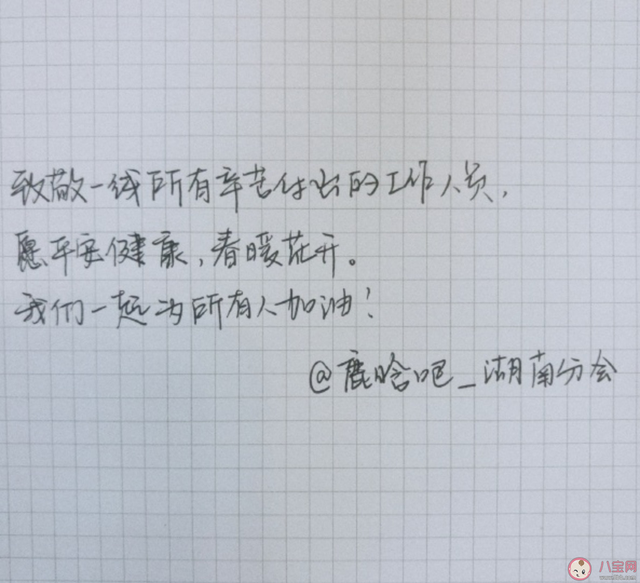 致敬一线所有辛苦付出的工作人员，
愿平安健康，春暖花开。
我们一起为所有人加油！
@鹿晗吧_湖南分会
八宝网